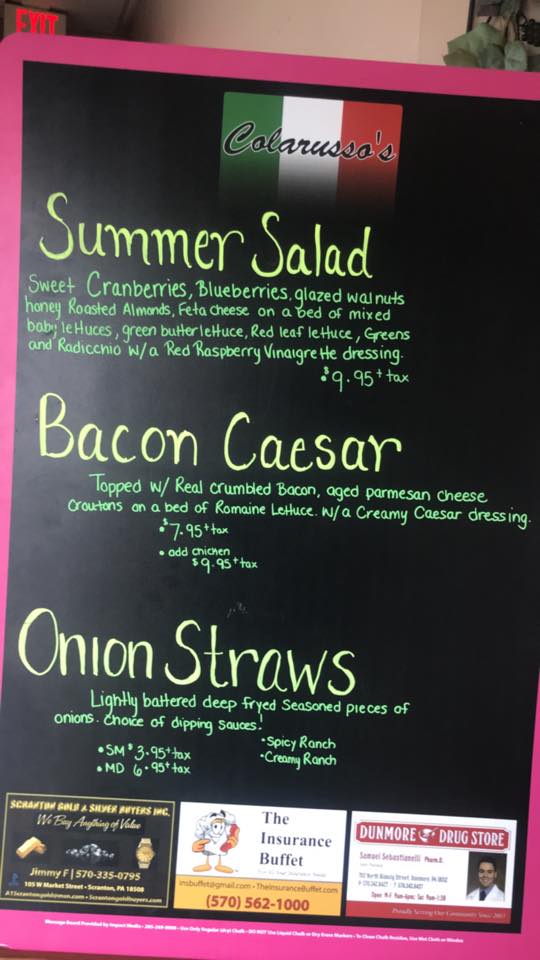 EXIT
Colarusso's
Summer Salad
Sweet Cranberries, Blueberries, glazed walnuts
honey Roasted Almonds, Feta cheese on a bed of mixed
baby lettuces, green butter lettuce, Red leaf lettuce, Greens
and Radicchio w/a Red Raspberry Vinaigrette dressing.
$9.95+tax
Bacon Caesar
Topped w/ Real crumbled Bacon, aged parmesan cheese
Croutons on a bed of Romaine Lettuce. w/a Creamy Caesar dressing.
• $7.95+tax
• add chicken
$9.95+tax
Onion Straws
Lightly battered deep fryed Seasoned pieces of
onions. choice of dipping sauces!
• SM $3.95+tax
• MD 6.95+tax
• Spicy Ranch
• Creamy Ranch
SCRANTON GOLD & SILVER BUYERS INC.
We Buy Anything of Value
Jimmy F | 570-335-0795
105 W Market Street • Scranton, PA 18508
The
Insurance
Buffet
insbuffet@gmail.com • TheInsuranceBuffet.com
(570) 562-1000
DUNMORE DRUG STORE
Samuel Sebastianelli Pharm.D.
Proudly Serving Our Community Since
Message Board Provided by Impact Media • Use Only Regular (dry) Chalk • DO NOT Use Liquid Chalk or Dry Erase Markers • To Clean Chalk Residue, Use Wet Cloth or Windex